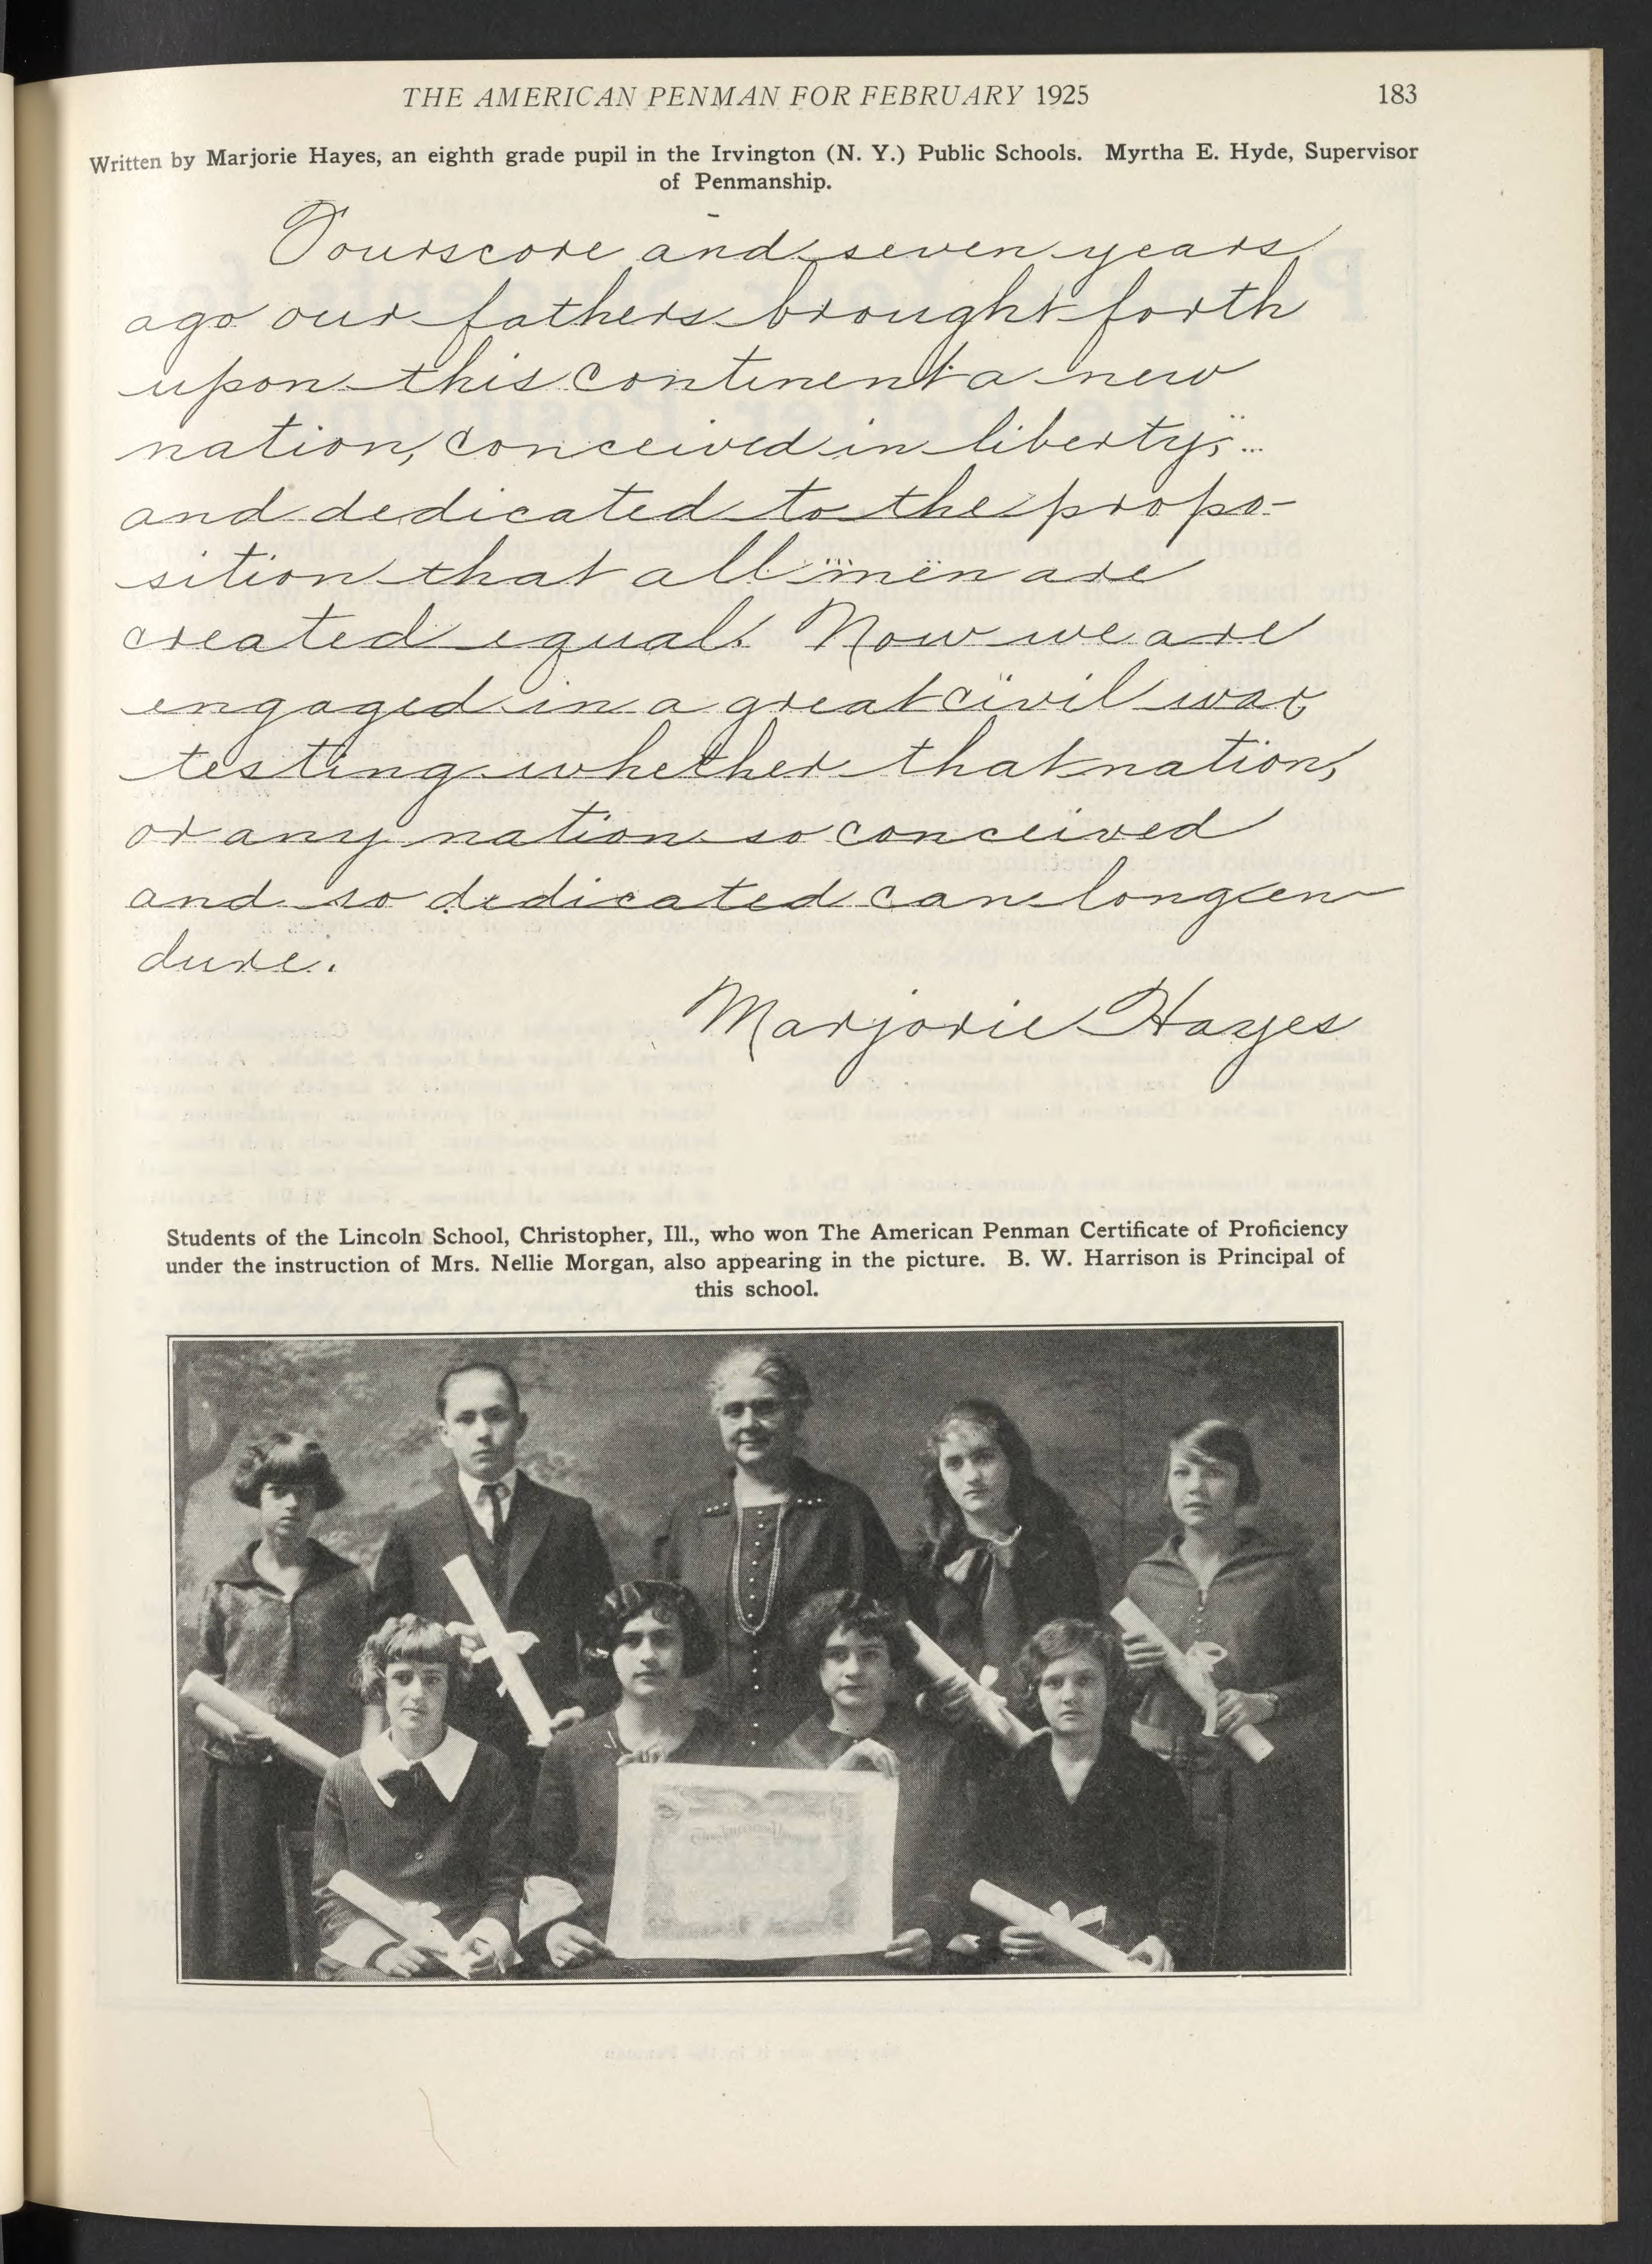 THE AMERICAN PENMAN FOR FEBRUARY 1925 183
Written by Marjorie Hayes, an eighth grade pupil in the Irvington (N. Y.) Public Schools. Myrtha E. Hyde, Supervisor
of Penmanship.
Fourscore and seven years
ago our fathers brought forth
upon this continent a new
nation, conceived in liberty,
and dedicated to the propo-
sition that all men are
created equal. Now we are
engaged in a great civil war,
testing whether that nation,
or any nation so conceived
and so dedicated can long en-
dure.
Marjorie Hayes
Students of the Lincoln School, Christopher, Ill., who won The American Penman Certificate of Proficiency
under the instruction of Mrs. Nellie Morgan, also appearing in the picture. B. W. Harrison is Principal of
this school.